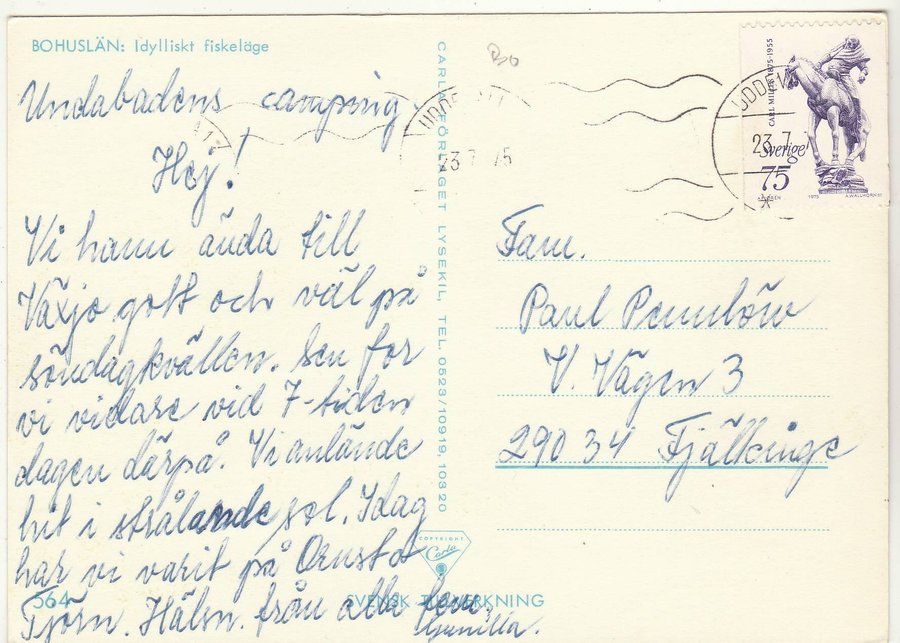 BOHUSLÄN: Idylliskt fiskeläge
Undabadens camping.
Hej!
Vi hann ända till
Växjö gott och väl på
söndagkvällen. Sen for
vi vidare vid 7-tiden
dagen därpå. Vi anlände
hit i strålande sol. Idag
har vi varit på Orust o
Tjörn. Hälsn. från alla fem
Gunilla.
564
SVENSK TILLVERKNING
CARLA-FÖRLAGET LYSEKIL, TEL. 0523/10919, 10320
COPYRIGHT
Carla
Bo
23 7 75
UDDEV
23.7
CARL MILLES 1875-1955
Sverige
75
1975
A.WALLHORN SC
Fam.
Paul Pennlöw
V. Vägen 3
290 34 Fjälkinge